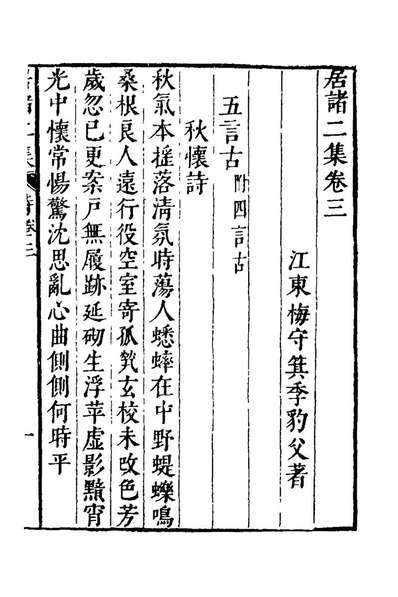 居諸二集卷三
江東梅守箕季豹父著
五言古附四言古
秋懷詩
秋氣本摇落清氛時蕩人蟋蟀在中野蝭鳴
桑根良人遠行役空室寄孤煢玄校未改色芳
歲忽已更案戶無履跡延砌生浮苹虛影黯宵
光中懷常惕驚沈思亂心曲側側何時平
居諸二集
詩卷三
一